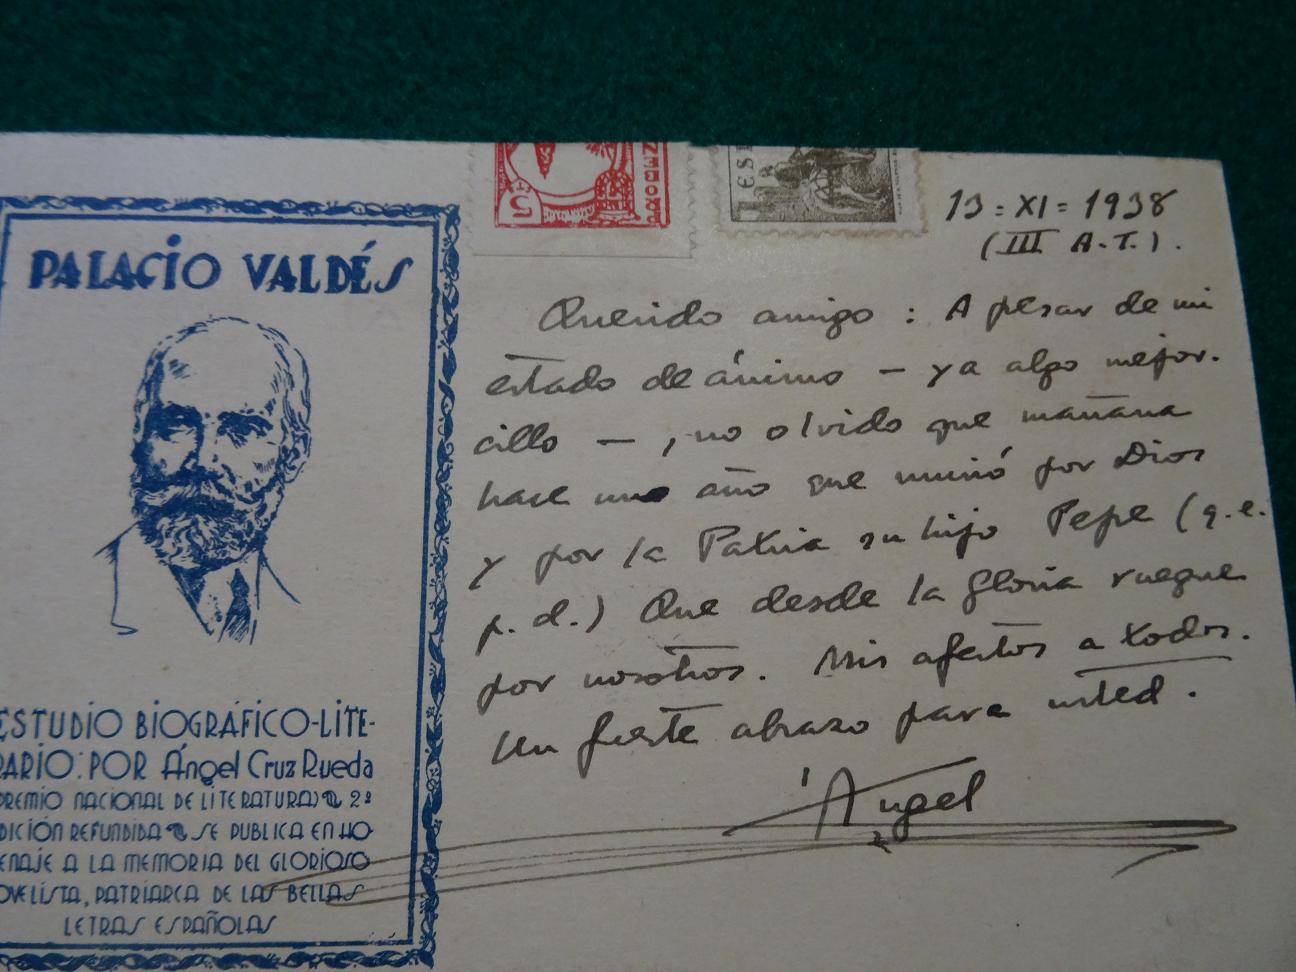 PALACIO VALDÉS
ESTUDIO BIOGRÁFICO-LITE-
RARIO: POR Ángel Cruz Rueda
PREMIO NACIONAL DE LITERATURA) 2ª
DICIÓN REFUNDIDA SE PUBLICA EN HO-
ENAJE A LA MEMORIA DEL GLORIOSO
OVELISTA, PATRIARCA DE LAS BELLAS
LETRAS ESPAÑOLAS
5
ES
13 = XI = 1938
(III A.T.).
Querido amigo: A pesar de mi
estado de ánimo — ya algo mejor-
cillo —, no olvido que mañana
hace un año que murió por Dios
y por la Patria su hijo Pepe (q.e.
p.d.) Que desde la Gloria ruegue
por nosotros. Mis afectos a todos.
Un fuerte abrazo para usted.
Ángel